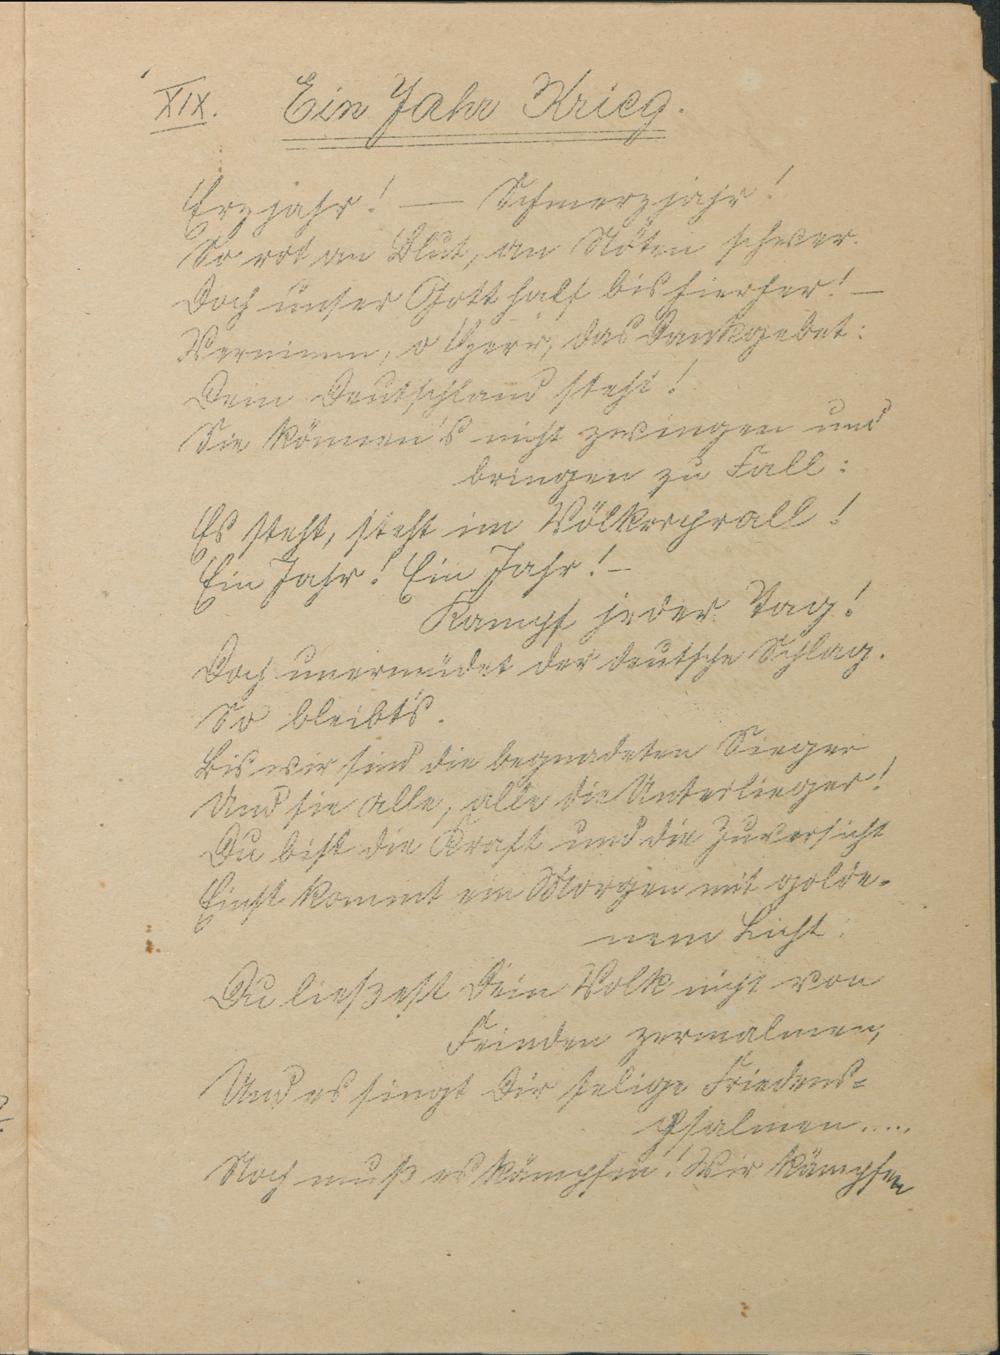 XIX. Ein Jahr Krieg.
Erzjahr! — Schmerzjahr!
So rot an Blut, an Nöten schwer.
Doch unser Gott half bis hierher! —
Vernimm, o Herr, das Dankgebet:
Dein Deutschland steht!
Sie können's nicht zwingen und
bringen zu Fall:
Es steht, steht im Völkerprall!
Ein Jahr! Ein Jahr! —
Kampf jeder Tag!
Doch unermüdet der deutsche Schlag.
So bleibt's.
Bis wir sind die begnadeten Sieger
Und sie alle, alle die Unterlieger!
Du bist die Kraft und die Zuversicht
Einst kommt ein Morgen mit golde-
nem Licht:
Du ließest Dein Volk nicht von
Feinden zermalmen,
Und es singt Dir selige Friedens-
Psalmen.....
Noch muß es kämpfen! Wir kämpfen